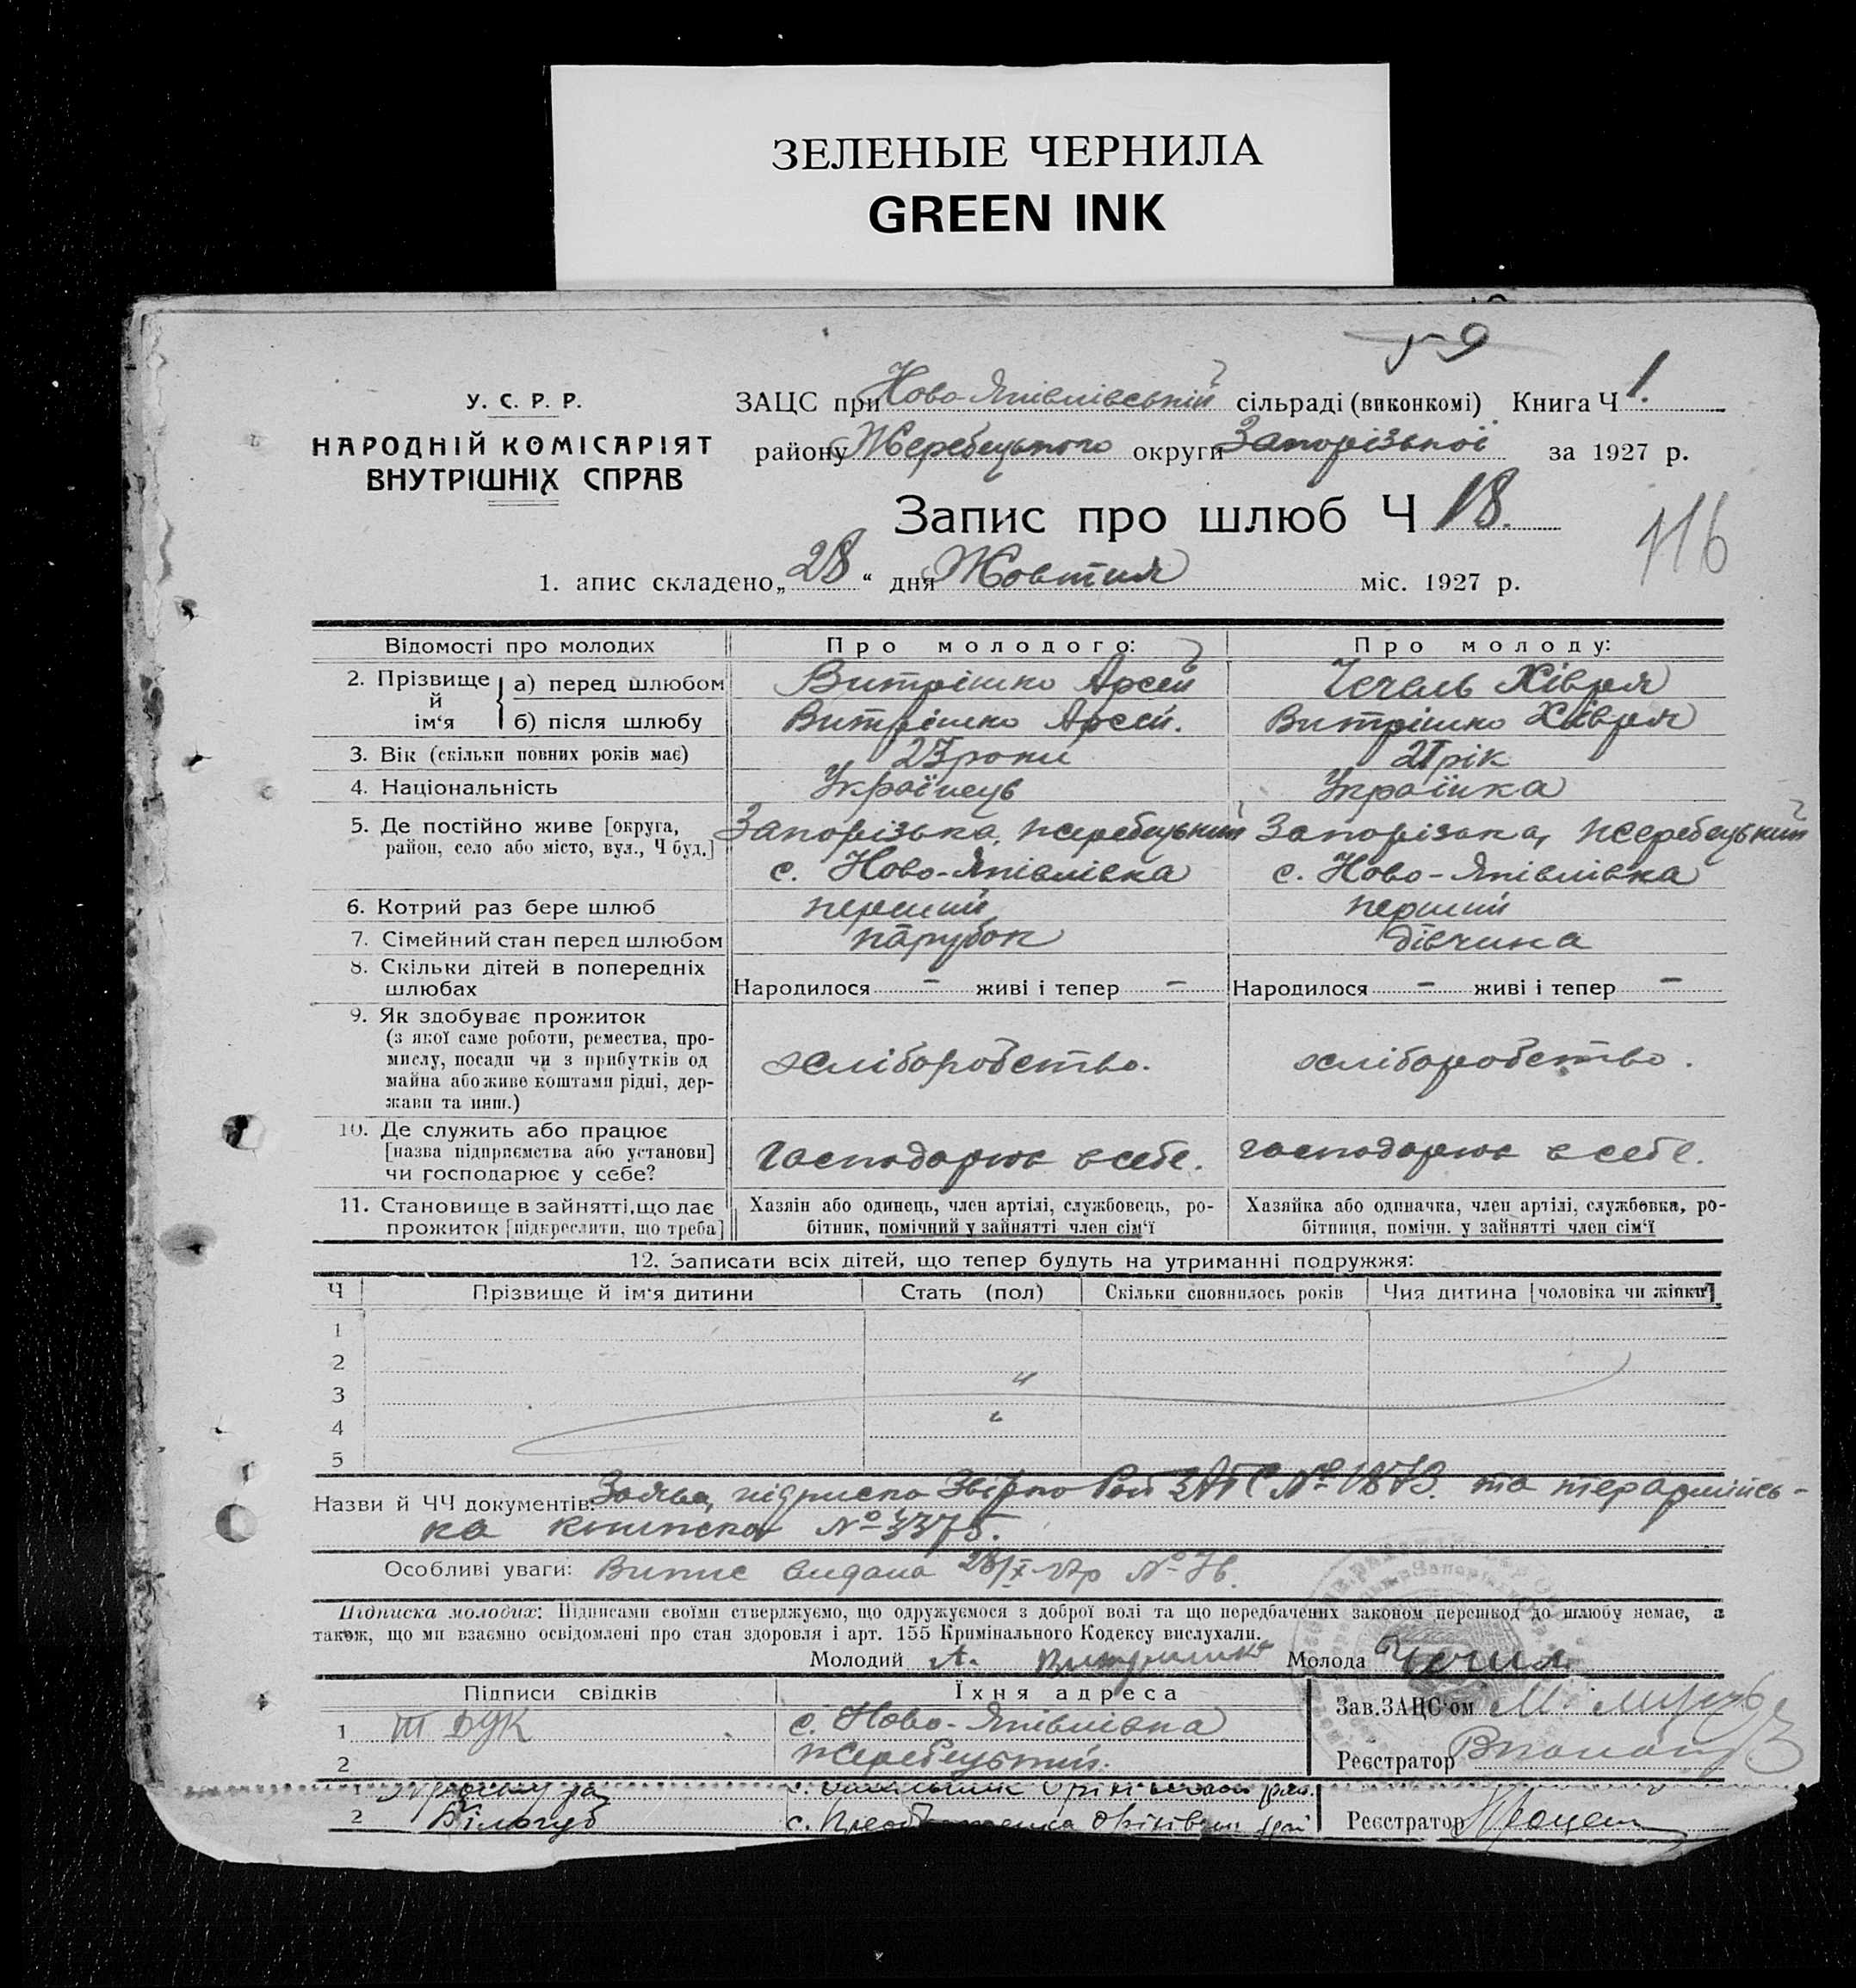 ЗЕЛЕНЫЕ ЧЕРНИЛА
GREEN INK
59
У. С. Р. Р.
НАРОДНІЙ КОМІСАРІЯТ
ВНУТРІШНІХ СПРАВ
ЗАЦС при Ново-Яківлівській сільраді (виконкомі) Книга Ч 1.
району Жеребецького округи Запорізької за 1927 р.
Запис про шлюб Ч 18.
116
1. апис складено „28“ дня Жовтня міс. 1927 р.
Відомості про молодих Про молодого: Про молоду:
2. Прізвище й ім‘я
а) перед шлюбом Витрішко Арсей Чечель Хівря
б) після шлюбу Витрішко Арсей. Витрішко Хівря
3. Вік (скільки повних років має) 23 роки 21 рік
4. Національність Українець Українка
5. Де постійно живе [округа, район, село або місто, вул., Ч буд.]
Запорізька, жеребецький Запорізька, жеребецький
с. Ново-Яківлівка с. Ново-Яківлівка
6. Котрий раз бере шлюб перший перший
7. Сімейний стан перед шлюбом парубок дівчина
8. Скільки дітей в попередніх шлюбах
Народилося - живі і тепер - Народилося - живі і тепер -
9. Як здобуває прожиток
(з якої саме роботи, ремества, про-
мислу, посади чи з прибутків од
майна або живе коштами рідні, дер-
жави та инш.)
хліборобство. хліборобство.
10. Де служить або працює
[назва підприємства або установи]
чи господарює у себе?
господарює в себе. господарює в себе.
11. Становище в зайнятті, що дає
прожиток [підкреслити, що треба]
Хазяїн або одинець, член артілі, службовець, ро-
бітник, помічний у зайнятті член сім‘ї
Хазяйка або одиначка, член артілі, службовка, ро-
бітниця, помічн. у зайнятті член сім‘ї
12. Записати всіх дітей, що тепер будуть на утриманні подружжя:
Ч Прізвище й ім‘я дитини Стать (пол) Скільки сповнилось років Чия дитина [чоловіка чи жінки]
1
2
3
4
5
Назви й ЧЧ документів: Заява, підписка Рай ЗАГС № 1873. та
ка книжка № 3375.
Особливі уваги: Витис видана 28/X-27р №
Підписка молодих: Підписами своїми стверджуємо, що одружуємося з доброї волі та що передбачених законом перешкод до шлюбу немає, а
також, що ми взаємно освідомлені про стан здоровля і арт. 155 Кримінального Кодексу вислухали.
Молодий А. Витришко Молода
Підписи свідків Їхня адреса
Зав. ЗАЦС‘ом М.
1 с. Ново-Яківлівка
2 Жеребецький.
Реєстратор
1
2 Білогуб с.
Реєстратор